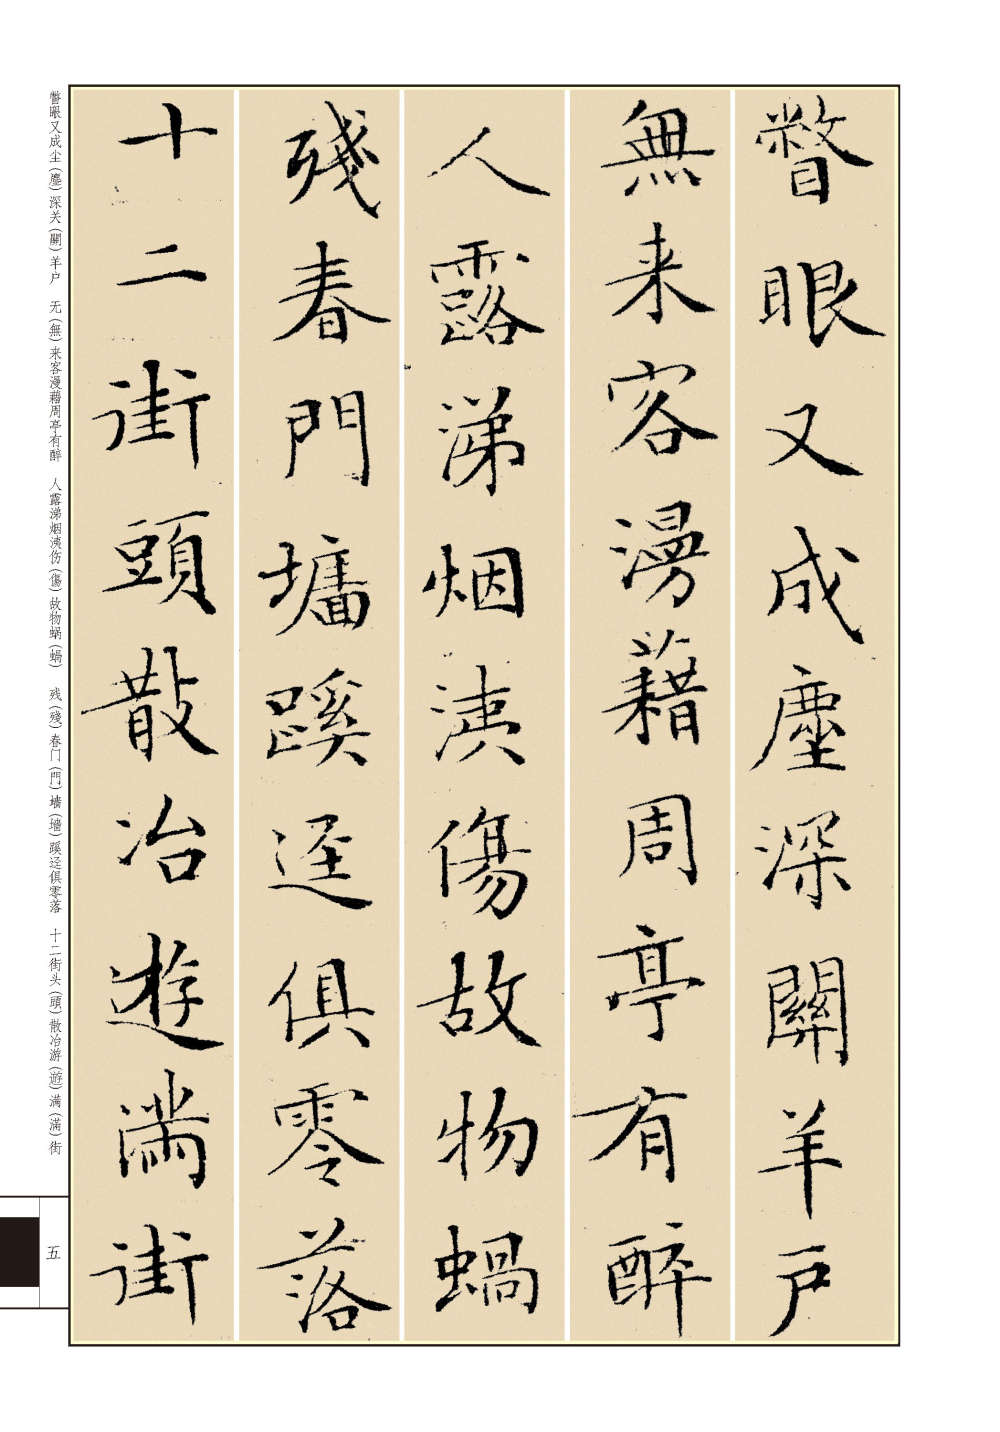 瞥眼又成塵深關羊户
無来客漫藉周亭有醉
人露涕烟洟傷故物蝸
殘春門墻蹊逕俱零落
十二街頭散冶遊滿街
瞥眼又成尘（塵）深关（關）羊户　无（無）来客漫藉周亭有醉　人露涕烟洟伤（傷）故物蜗（蝸）　残（殘）春门（門）墙（墻）蹊迳俱零落　十二街头（頭）散冶游（遊）满（滿）街
五